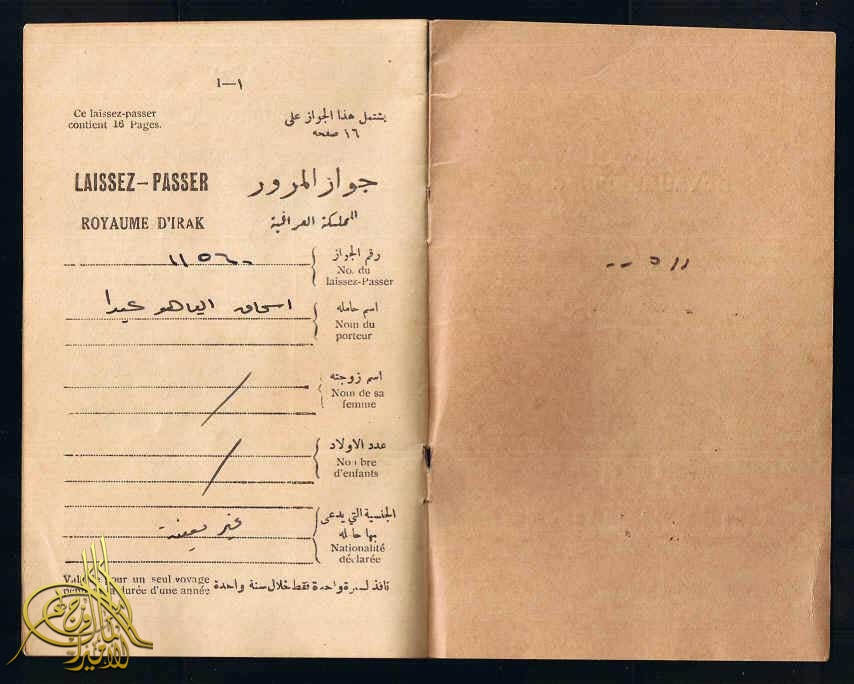 1—١
Ce laissez-passer
contient 16 Pages.
يشتمل هذا الجواز على
١٦ صفحه
LAISSEZ-PASSER
جواز المرور
ROYAUME D'IRAK
المملكة العراقية
رقم الجواز
No. du
laissez-Passer
١١٥٦٠
اسم حامله
Nom du
porteur
اسحاق الياهو عبدا
اسم زوجته
Nom de sa
femme
عدد الاولاد
No bre
d'enfants
الجنسية التي يدعى
بها حامله
Nationalité
déclarée
غير معينة
pour un seul voyage
durée d'une année
نافذ لسفرة واحدة فقط خلال سنة واحدة